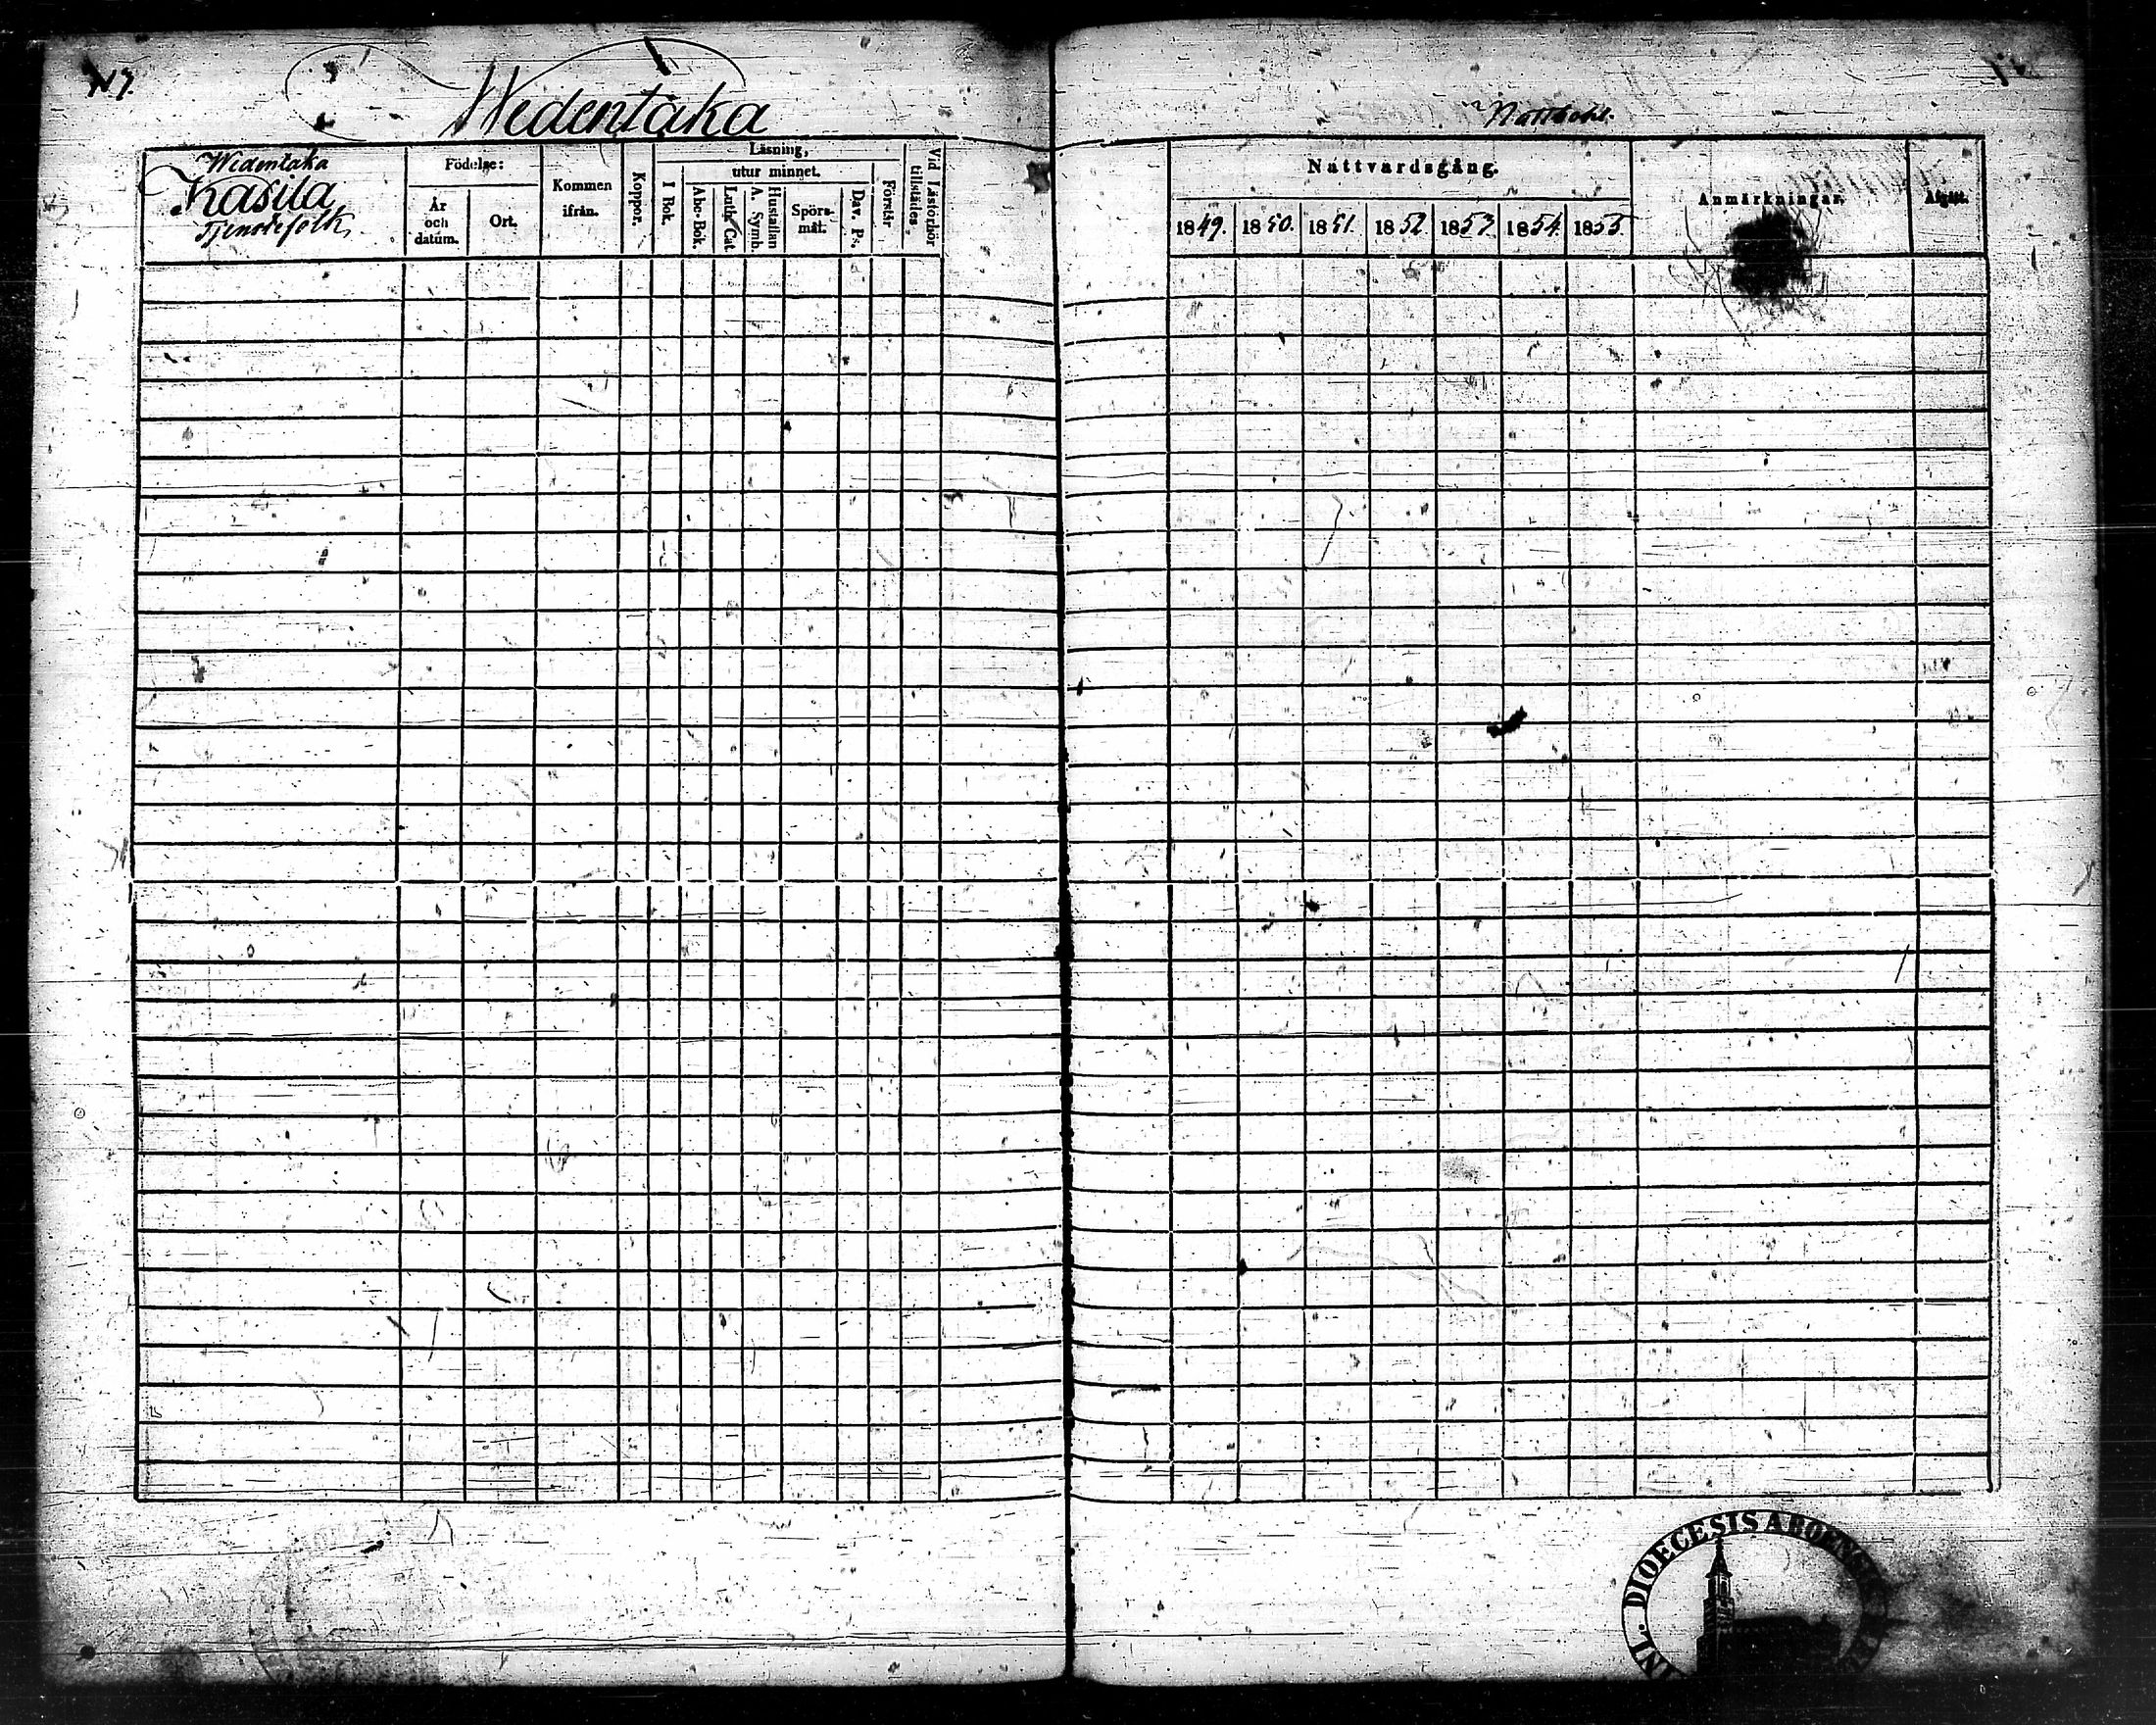 Wedentaka
Wedentaka
Kasila
Tjenstefolk
Födelse:
År
och
datum.
Ort.
Kommen
ifrån.
Koppor.
Läsning,
utur minnet.
I Bok.
Abc-Bok.
Luth. Cat.
Hustaflan
A. Symb.
Spörs-
mål.
Dav. Ps.
Förstår
Vid Läsförhör
tillstädes.
Nattvardsgång.
1849.
1850.
1851.
1852.
1853.
1854.
1855
Anmärkningar.
Afgått.
DIOECESIS ABOENSIS